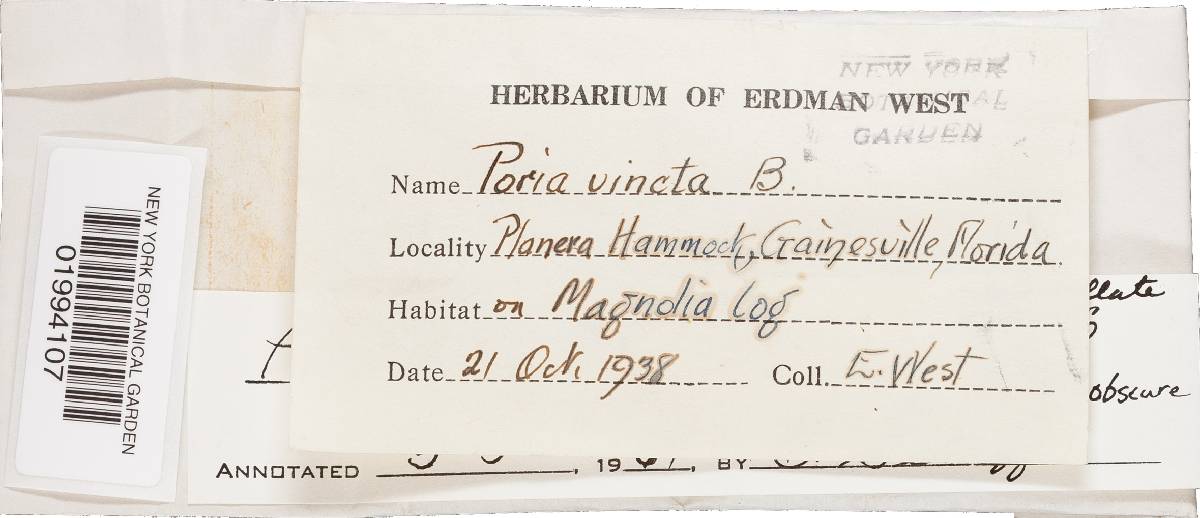 NEW YORK
BOTANICAL
GARDEN
HERBARIUM OF ERDMAN WEST
Name Poria vincta B.
Locality Planera Hammock, Gainesville, Florida.
Habitat on Magnolia log
Date 21 Oct. 1938 Coll. E. West
NEW YORK BOTANICAL GARDEN
01994107
obscure
ANNOTATED , 19 , BY